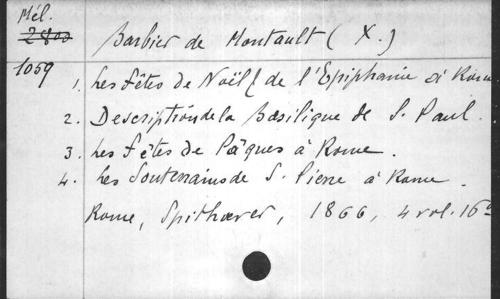 Mél.
2800
Barbier de Montault (X.)
1059
1. Les Fêtes de Noël & de l'Epiphanie à Rome
2. Description de la Basilique de S. Paul.
3. Les Fêtes de Pâques à Rome.
4. Les Souterrains de S. Pierre à Rome.
Rome, Spithœver, 1866, 4 vol. 16º